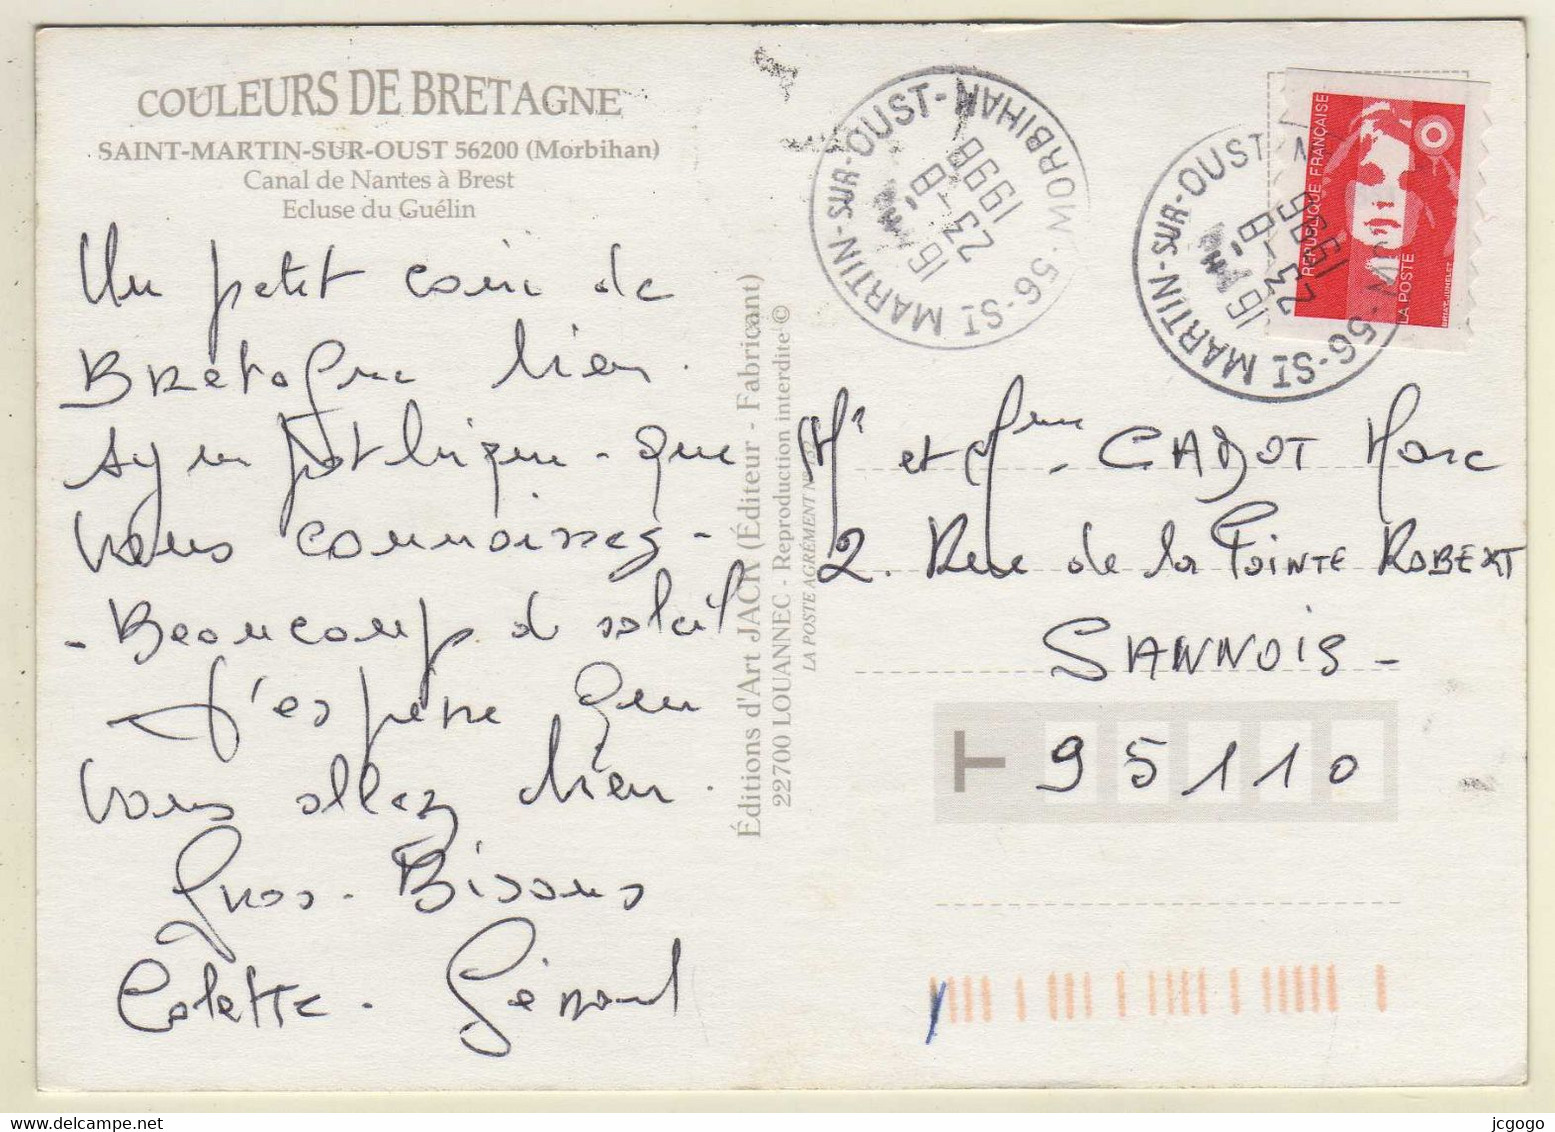 COULEURS DE BRETAGNE
SAINT-MARTIN-SUR-OUST 56200 (Morbihan)
Canal de Nantes à Brest
Ecluse du Guélin
Un petit coin de
Bretagne bien
sympathique - que
vous connaissez -
- Beaucoup de soleil
J'espère que
vous allez bien.
Gros - Bisous
Colette - Gérard
Éditions d'Art JACK (Éditeur - Fabricant)
22700 LOUANNEC - Reproduction interdite ©
LA POSTE AGRÉMENT N°
56 - ST MARTIN-SUR-OUST - MORBIHAN
16 H
23 - 8
1999
56 - ST MARTIN-SUR-OUST
16 H
23 - 8
1999
REPUBLIQUE FRANÇAISE
LA POSTE
BRIAT-JUMELET
Mr et Mme CADOT Marc
2. Rue de la Pointe ROBERT
SANNOIS -
T 95110
jcgogo